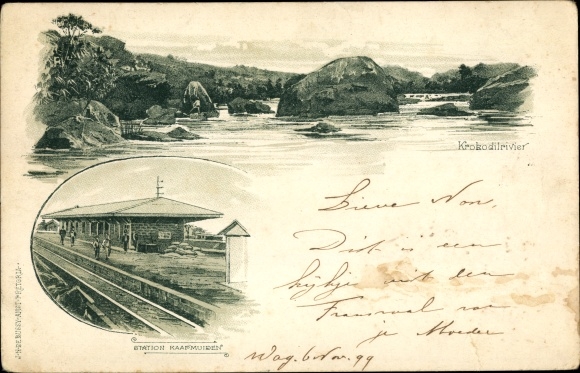 Krokodilrivier
Lieve Non,
Dit is een
kijkje uit den
Transvaal van
je Moeder
Wag. 6 Nov. 99
STATION KAAPMUIDEN
J.H.DE BUSSY-AMST-PRETORIA